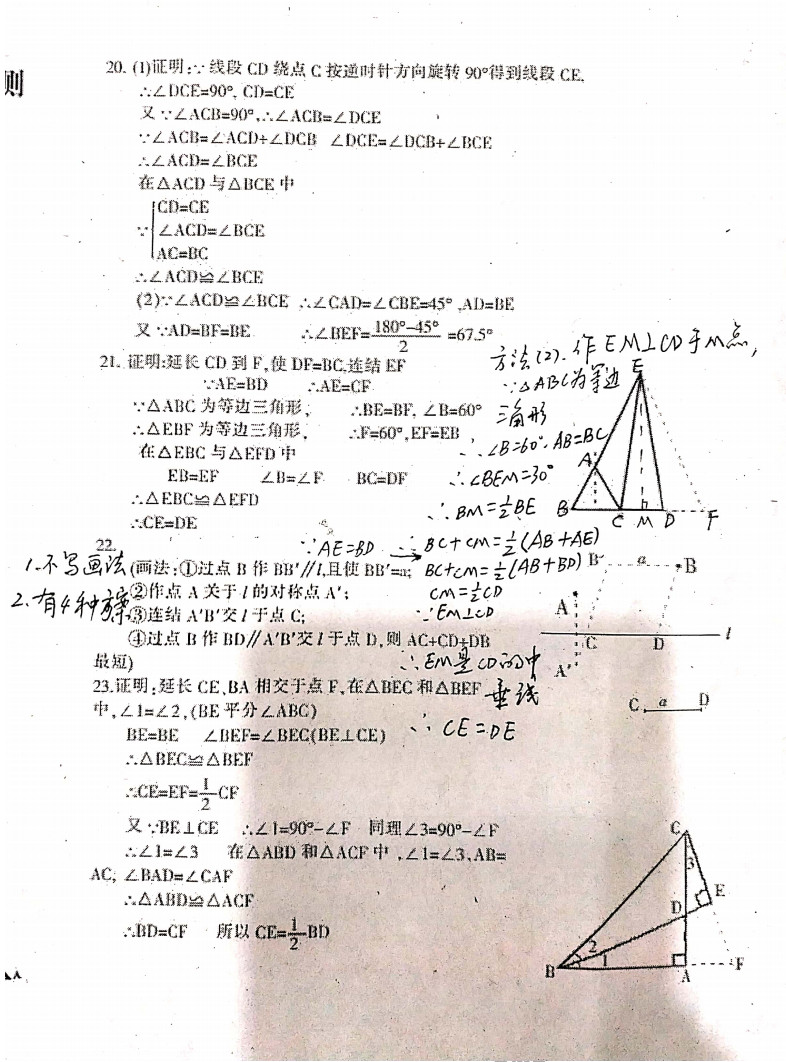 则
20. (1)证明:∵线段 CD 绕点 C 按逆时针方向旋转 90°得到线段 CE.
∴∠DCE=90°, CD=CE
又∵∠ACB=90°,∴∠ACB=∠DCE
∵∠ACB=∠ACD+∠DCB ∠DCE=∠DCB+∠BCE
∴∠ACD=∠BCE
在△ACD 与△BCE 中
CD=CE
∵ ∠ACD=∠BCE
AC=BC
∴∠ACD≌∠BCE
(2)∵∠ACD≌∠BCE ∴∠CAD=∠CBE=45° ,AD=BE
又∵AD=BF=BE ∴∠BEF=180°-45°/2=67.5°
21. 证明:延长 CD 到 F,使 DF=BC,连结 EF
∵AE=BD ∴AE=CF
∵△ABC 为等边三角形, ∴BE=BF, ∠B=60°
∴△EBF 为等边三角形, ∴F=60°,EF=EB
在△EBC 与△EFD 中
EB=EF ∠B=∠F BC=DF
∴△EBC≌△EFD
∴CE=DE
方法(2).作EM⊥CD于M点,
∵△ABC为等边
三角形
∴∠B=60°.AB=BC
∴∠BEM=30°
∴BM=½BE
∵AE=BD ∴BC+CM=½(AB+AE)
BC+CM=½(AB+BD)
CM=½CD
∵EM⊥CD
∴EM是CD的中
垂线
∴CE=DE
E
A
B C M D F
22.
1.不写画法
2.有4种方案
(画法:①过点 B 作 BB′∥l,且使 BB′=a;
②作点 A 关于 l 的对称点 A′;
③连结 A′B′交 l 于点 C;
④过点 B 作 BD∥A′B′交 l 于点 D,则 AC+CD+DB
最短)
B′ a B
A
C D l
A′
C a D
23.证明:延长 CE、BA 相交于点 F,在△BEC 和△BEF
中,∠1=∠2,(BE 平分∠ABC)
BE=BE ∠BEF=∠BEC(BE⊥CE)
∴△BEC≌△BEF
∴CE=EF=1/2CF
又∵BE⊥CE ∴∠1=90°-∠F 同理∠3=90°-∠F
∴∠1=∠3 在△ABD 和△ACF 中,∠1=∠3、AB=
AC, ∠BAD=∠CAF
∴△ABD≌△ACF
∴BD=CF 所以 CE=1/2BD
C
3
E
D
2
1
B A F